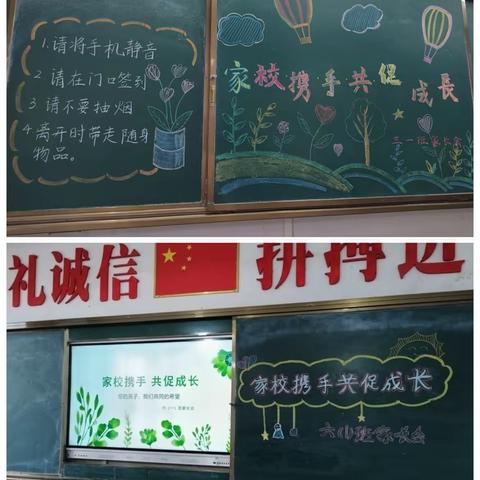 1.请将手机静音
2 请在门口签到
3 请不要抽烟
4 离开时带走随身
物品。
家校携手共促
成长
三一班家长会
礼诚信
拼搏进
家校携手 共促成长
你的孩子，我们共同的希望
家校携手共促成长
六(1)班家长会